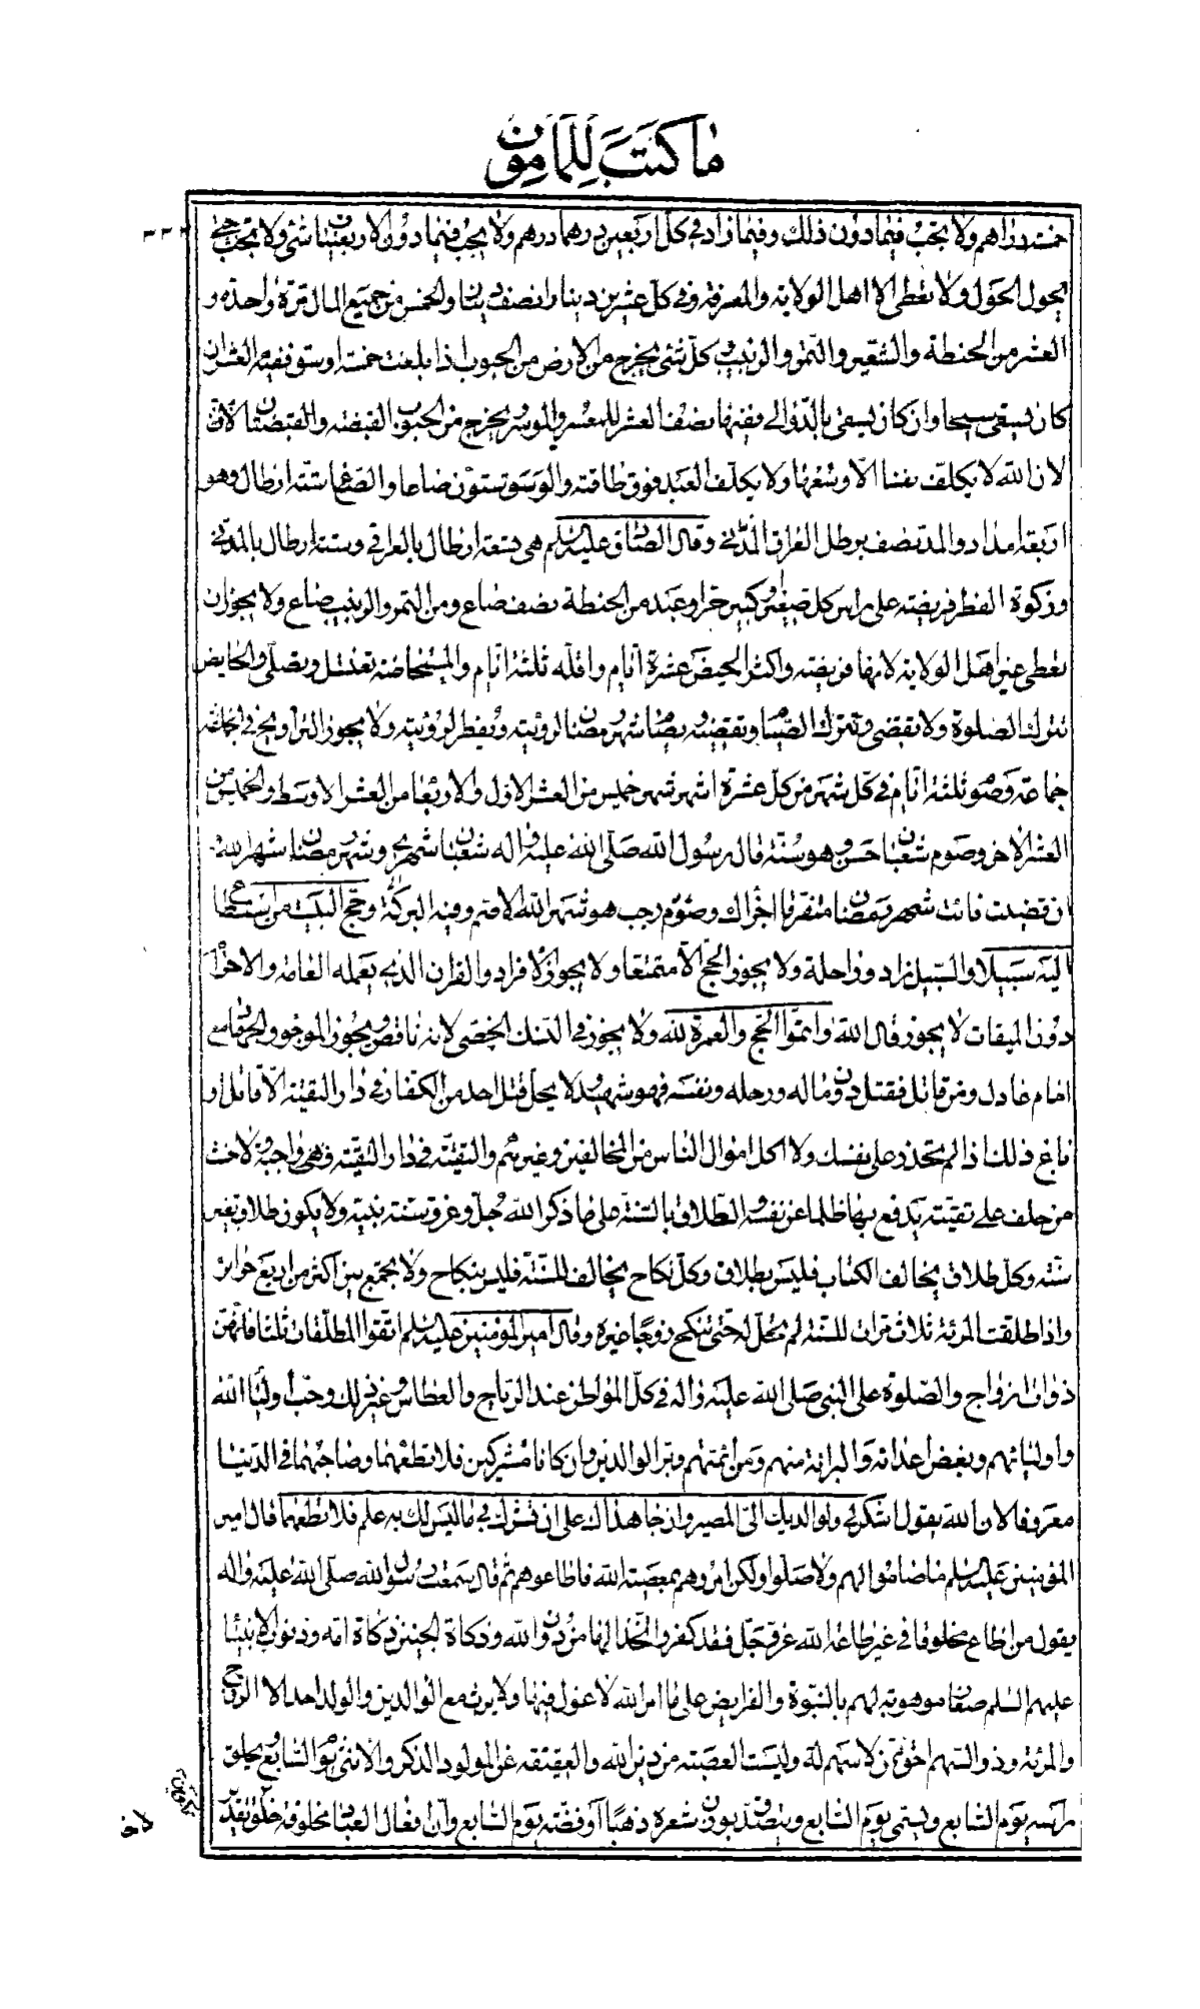 ما كتب للمامون
٢٣٣
خمسة دراهم ولا يجب فيما دون ذلك وفيما زاد في كل اربعين درهما درهم ولا يجب فيما دون الاربعينات شي ولا يجب حتى
يحول الحول ولا يعطى الا اهل الولاية والمعرفة وفي كل عشرين دينارا نصف دينار والخمس من جميع المال مرة واحدة و
العشر من الحنطة والشعير والتمر والزبيب كل شئ يخرج من الارض من الحبوب اذا بلغت خمسة اوسق ففيه العشر ان
كان يسقى سيحا وان كان يسقى بالدوالي ففيها نصف العشر للمعسر والموسر يخرج من الحبوب القبضة والقبضتان
لان الله لا يكلف نفسا الا وسعها ولا يكلف العبد فوق طاقته والوسق ستون صاعا والصاع ستة ارطال وهو
اربعة امداد والمد نصف برطل العراق المدني وقال الصادق عليه السلم هي تسعة ارطال بالعراقي وستة ارطال بالمدني
وزكوة الفطر فريضة على راس كل صغير وكبير حر او عبد من الحنطة نصف صاع ومن التمر والزبيب صاع ولا يجوز ان
تعطى غير اهل الولاية لانها فريضة واكثر الحيض عشرة ايام واقله ثلثة ايام والمستحاضة تغتسل وتصلي والحايض
تترك الصلوة ولا تقضي وتترك الصيام وتقضيه ويصام شهر رمضان لرؤيته ويفطر لرؤيته ولا يجوز التراويح في
جماعة وصوم ثلثة ايام في كل شهر من كل عشرة اشهر شهر خميس من العشر الاول والاربعا من العشر الاوسط والخميس من
العشر الاخر وصوم شعبان حسن وهو سنة قال رسول الله صلى الله عليه واله شعبان شهري وشهر رمضان شهر الله
ان قضيت فائت شهر رمضان متفرقا اجزاك وصوم رجب هو شهر الله الاصم وفيه البركة وحج البيت من استطاع
اليه سبيلا والسبيل زاد وراحلة ولا يجوز الحج الا متمتعا ولا يجوز الافراد والقران الذي يعمله العامة والاحرام
دون الميقات لا يجوز قال الله واتموا الحج والعمرة لله ولا يجوز في النسك الخصي لانه ناقص ويجوز الموجوء والجهاد مع
امام عادل ومن قاتل فقتل دون ماله ورحله ونفسه فهو شهيد ولا يحل قتل احد من الكفار في دار التقية الا قاتل او
باغ وذلك اذا لم تحذر على نفسك ولا اكل اموال الناس من المخالفين وغيرهم والتقية في دار التقية واجبة ولا حنث
من حلف على تقية يدفع بها ظلما عن نفسه والطلاق بالسنة على ما ذكر الله جل وعز وسنة نبيه ولا يكون طلاق بغير
سنة وكل طلاق يخالف الكتاب فليس بطلاق وكل نكاح يخالف السنة فليس بنكاح ولا يجمع بين اكثر من اربع حرائر
واذا طلقت المرئة ثلاث مرات للسنة لم تحل له حتى تنكح زوجا غيره وقال امير المؤمنين عليه السلم اتقوا المطلقات ثلثا فانهن
ذوات ازواج والصلوة على النبي صلى الله عليه واله في كل المواطن عند الرياح والعطاس وغير ذلك وحب اولياء الله
واوليائهم وبغض اعدائه والبرائة منهم ومن ائمتهم وبر الوالدين وان كانا مشركين فلا تطعهما وصاحبهما في الدنيا
معروفا لان الله يقول اشكر لي ولوالديك الي المصير وان جاهداك على ان تشرك بي ما ليس لك به علم فلا تطعهما قال امير
المؤمنين عليه السلم ما صاموا لهم ولا صلوا ولكن امروهم بمعصية الله فاطاعوهم ثم قال سمعت رسول الله صلى الله عليه واله
يقول من اطاع مخلوقا في غير طاعة الله عز وجل فقد كفر واتخذ الها من دون الله وذكاة الجنين ذكاة امه وذنوب الانبياء
عليهم السلم صغار موهوبة لهم بالنبوة والفرايض على ما امر الله لا عول فيها ولا يرث مع الوالدين والولد احد الا الزوج
والمرئة وذو السهم احق ممن لا سهم له وليست العصبة من دين الله والعقيقة عن المولود الذكر والانثى يوم السابع يحلق
راسه يوم السابع ويسمى يوم السابع ويتصدق بوزن شعره ذهبا او فضة يوم السابع وان افعال العباد مخلوقة خلق تقدير